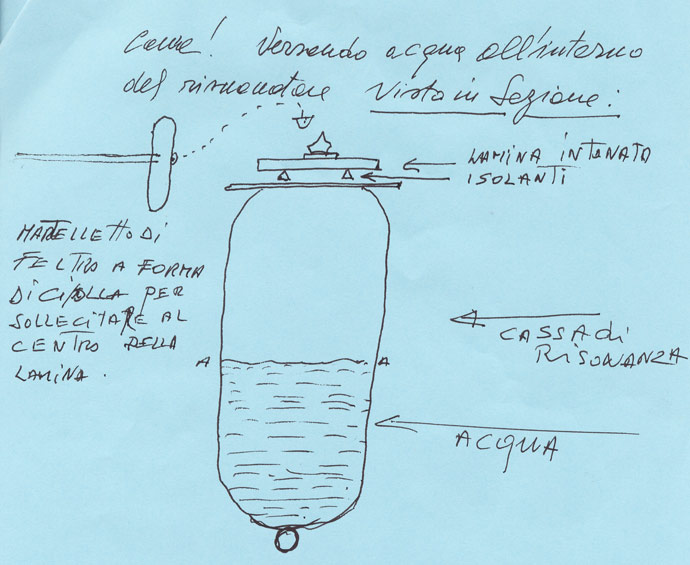 Come! Versando acqua all'interno
del risuonatore Vista in Sezione:
LAMINA INTONATA
ISOLANTI
MARTELLETTO DI
FELTRO A FORMA
DI CIPOLLA PER
SOLLECITARE AL
CENTRO DELLA
LAMINA.
CASSA di
RISONANZA
A A
ACQUA